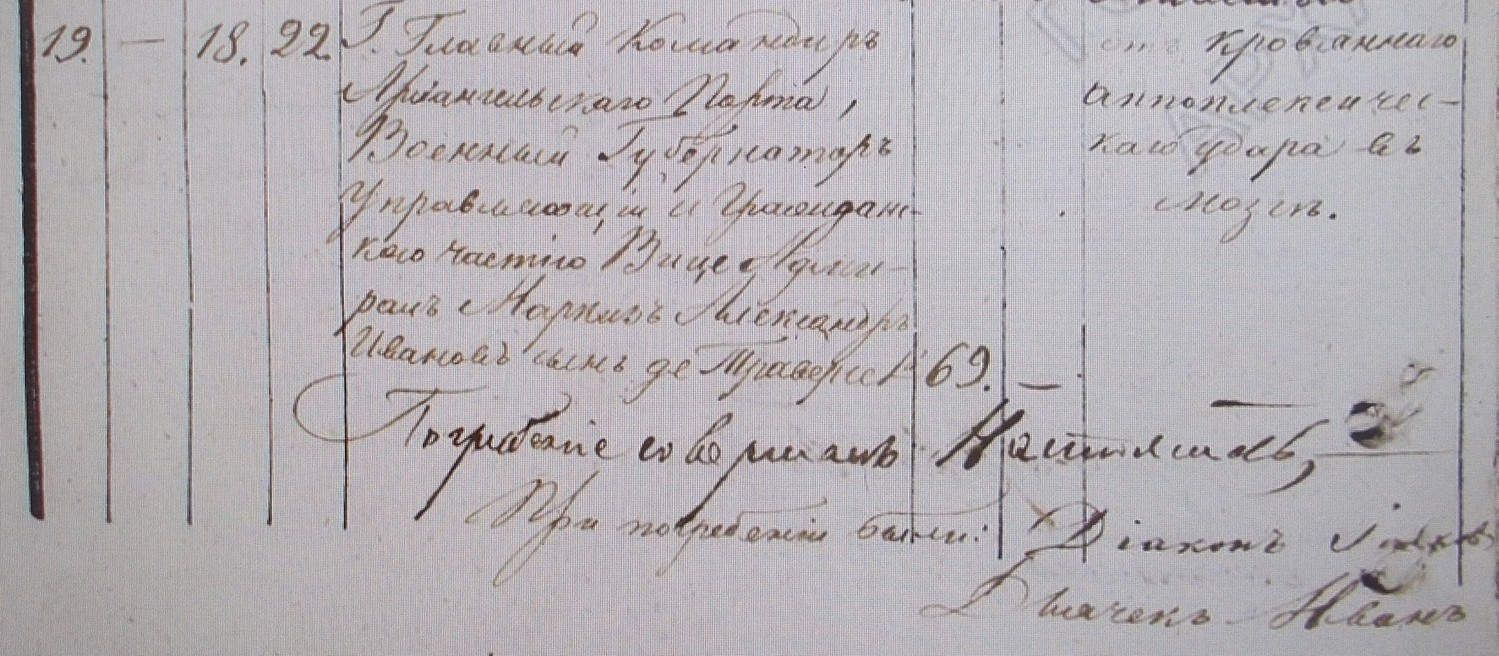 19. — 18. 22. Г. Главный Командиръ
Архангельскаго Порта,
Военный Губернаторъ
Управляющій и Граждан-
кою частію Вице Адми-
ралъ Маркизъ Александръ
Ивановъ сынъ де Траверсе 1й 69. —
отъ кровяннаго
аппоплексичес-
каго удара въ
мозгъ.
Погребеніе совершалъ Настоятель,
При погребеніи были: Діаконъ
Дьячекъ Иванъ